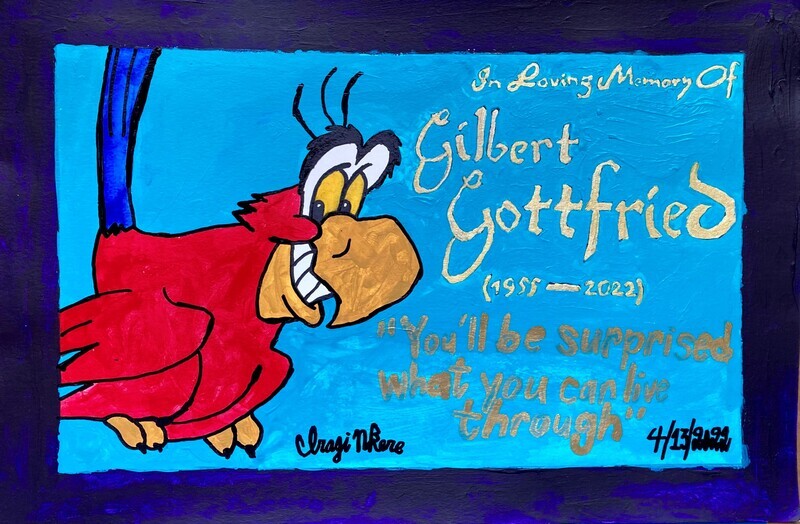 In Loving Memory Of
Gilbert
Gottfried
(1955 — 2022)
"You'll be surprised
what you can live
through"
4/13/2022